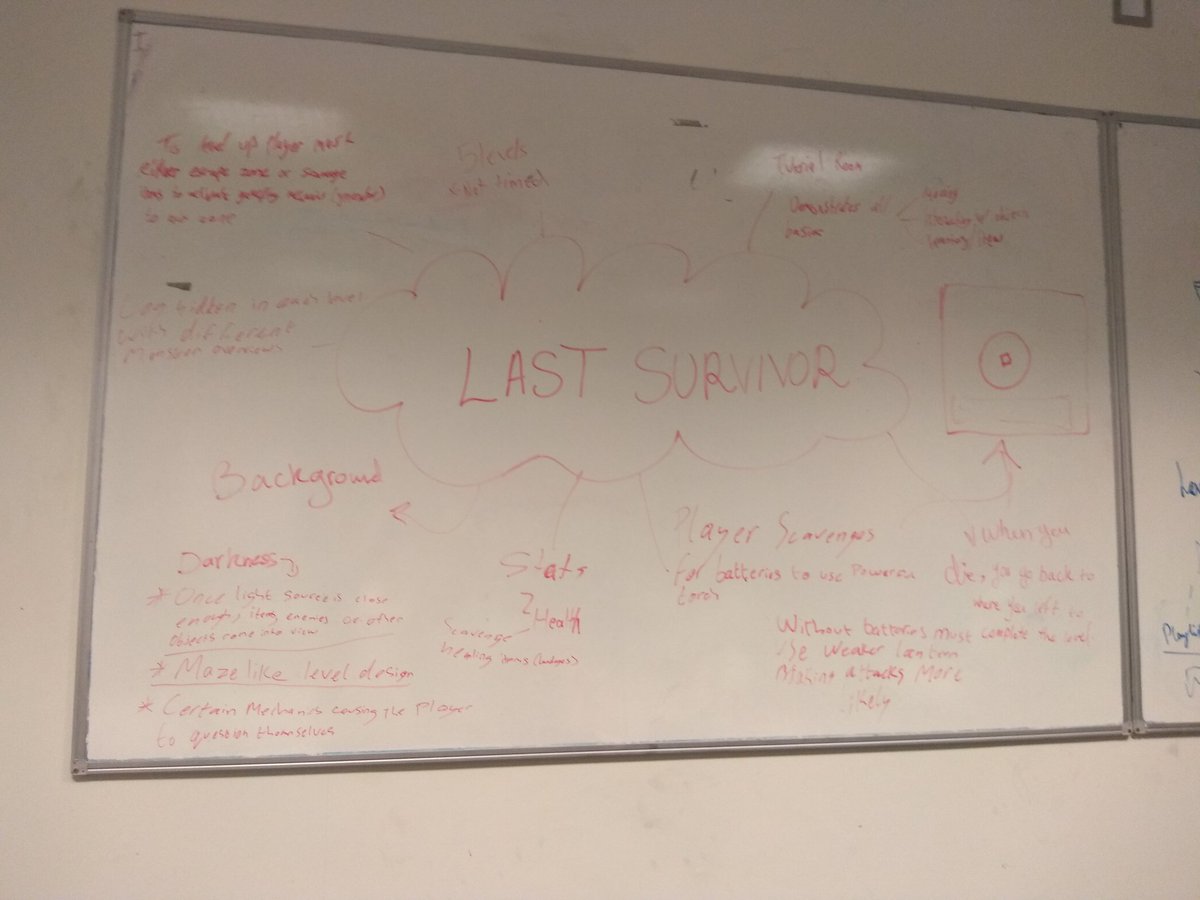 To level up Player must
either escape zone or scavenge
items to activate
to our zone
5 levels
Not timed
Tutorial Room
Demonstrates all
basics
hidden in each level
with different
Monster
LAST SURVIVOR
Background
Darkness
* Once light source is close
enough, items, enemies or other
objects come into view
* Maze like level design
* Certain Mechanics causing the Player
to question themselves
Stats
Health
Scavenge
healing items (bandages)
Player Scavenges
for batteries to use Powerful
torch
Without batteries must complete the level
Use weaker lantern
Making attacks More
likely
When you
die, you go back to
where you left to